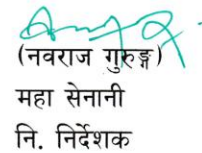 (नवराज गुरुङ्ग)
महा सेनानी
नि. निर्देशक